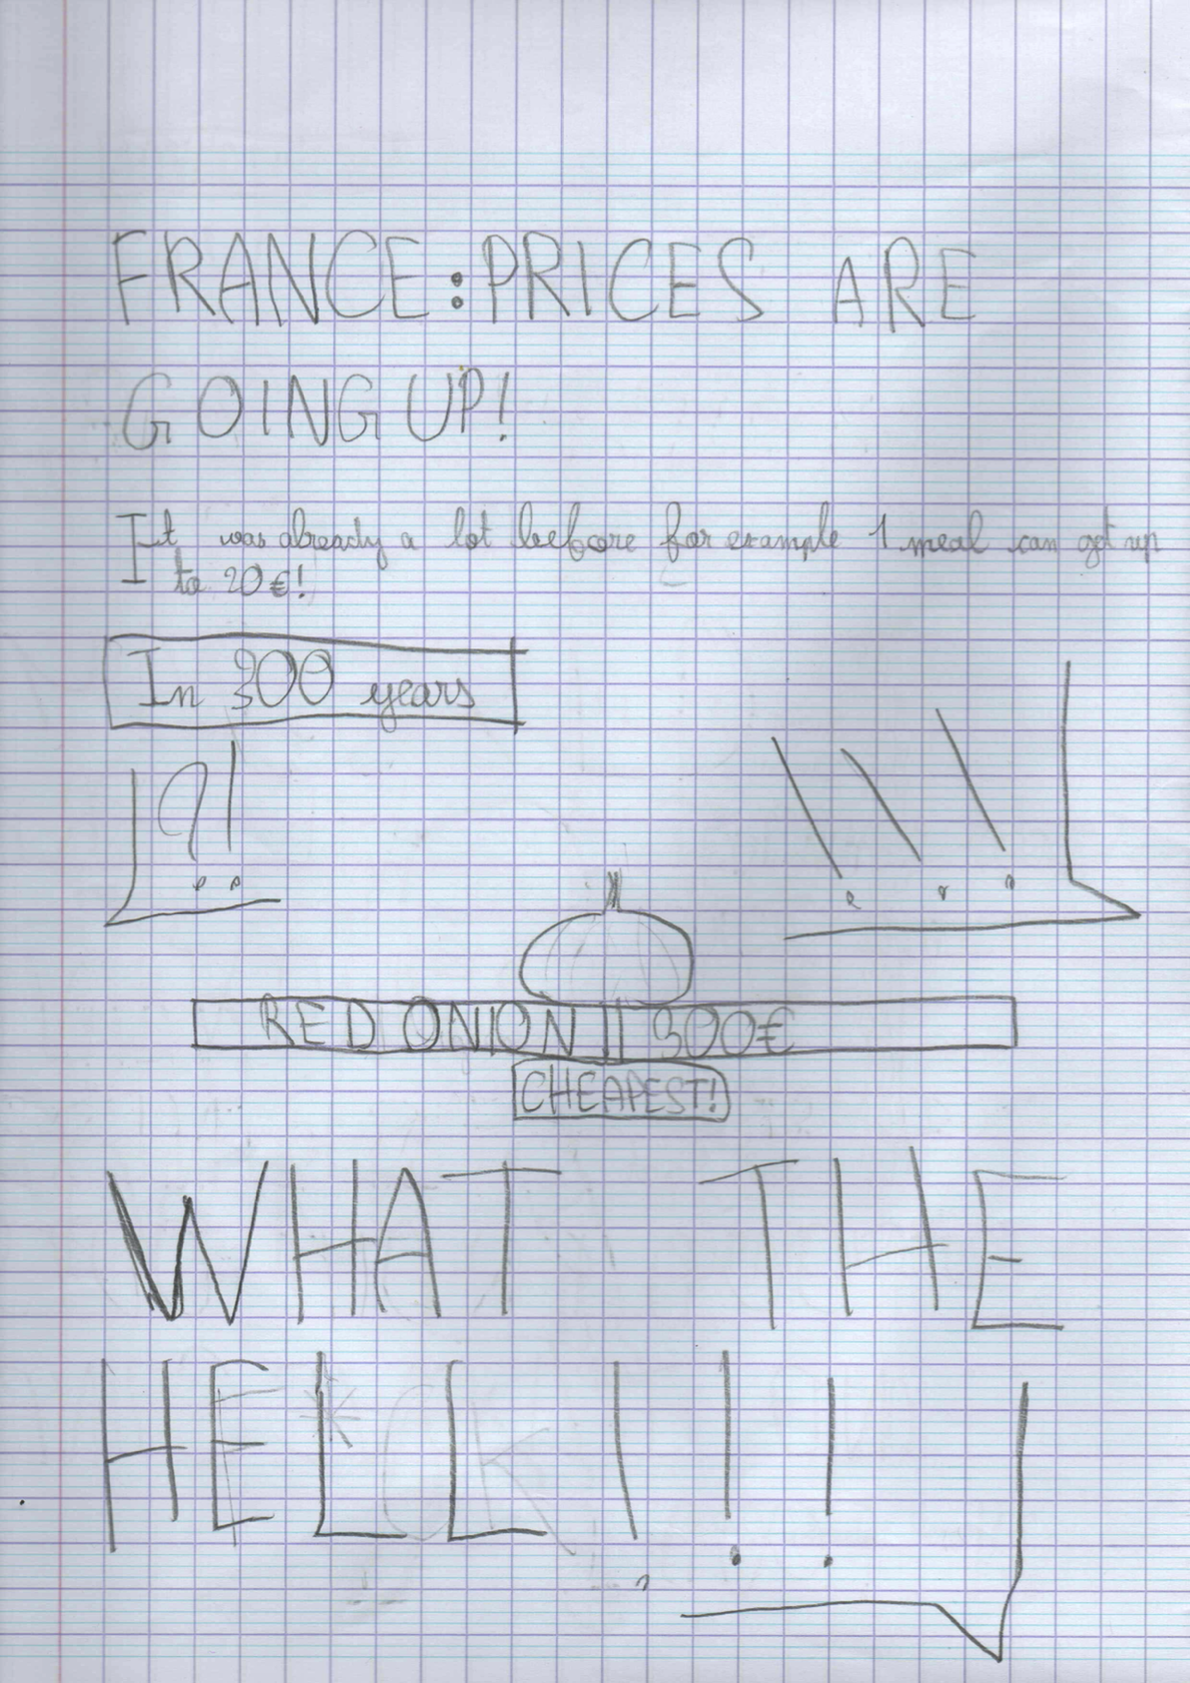 FRANCE:PRICES ARE
GOING UP!
It was already a lot before for example 1 meal can got up
to 20€!
In 300 years
?!
!!!
RED ONION || 300€
CHEAPEST!
WHAT THE
HELL!!!